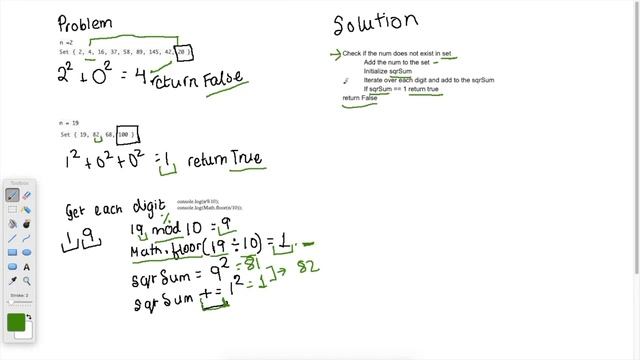 Problem
n =2
Set { 2, 4, 16, 37, 58, 89, 145, 42, 20 }
2² + 0² = 4 return False
n = 19
Set { 19, 82, 68, 100 }
1² + 0² + 0² = 1 return True
Get each digit
console.log(n%10);
console.log(Math.floor(n/10));
%
1 9
19 mod 10 = 9
Math.floor(19 ÷ 10) = 1
sqrSum = 9² = 81
→ 82
sqrSum += 1² = 1
Solution
→ Check if the num does not exist in set
Add the num to the set
Initialize sqrSum
Iterate over each digit and add to the sqrSum
If sqrSum == 1 return true
return False
Stroke: 2